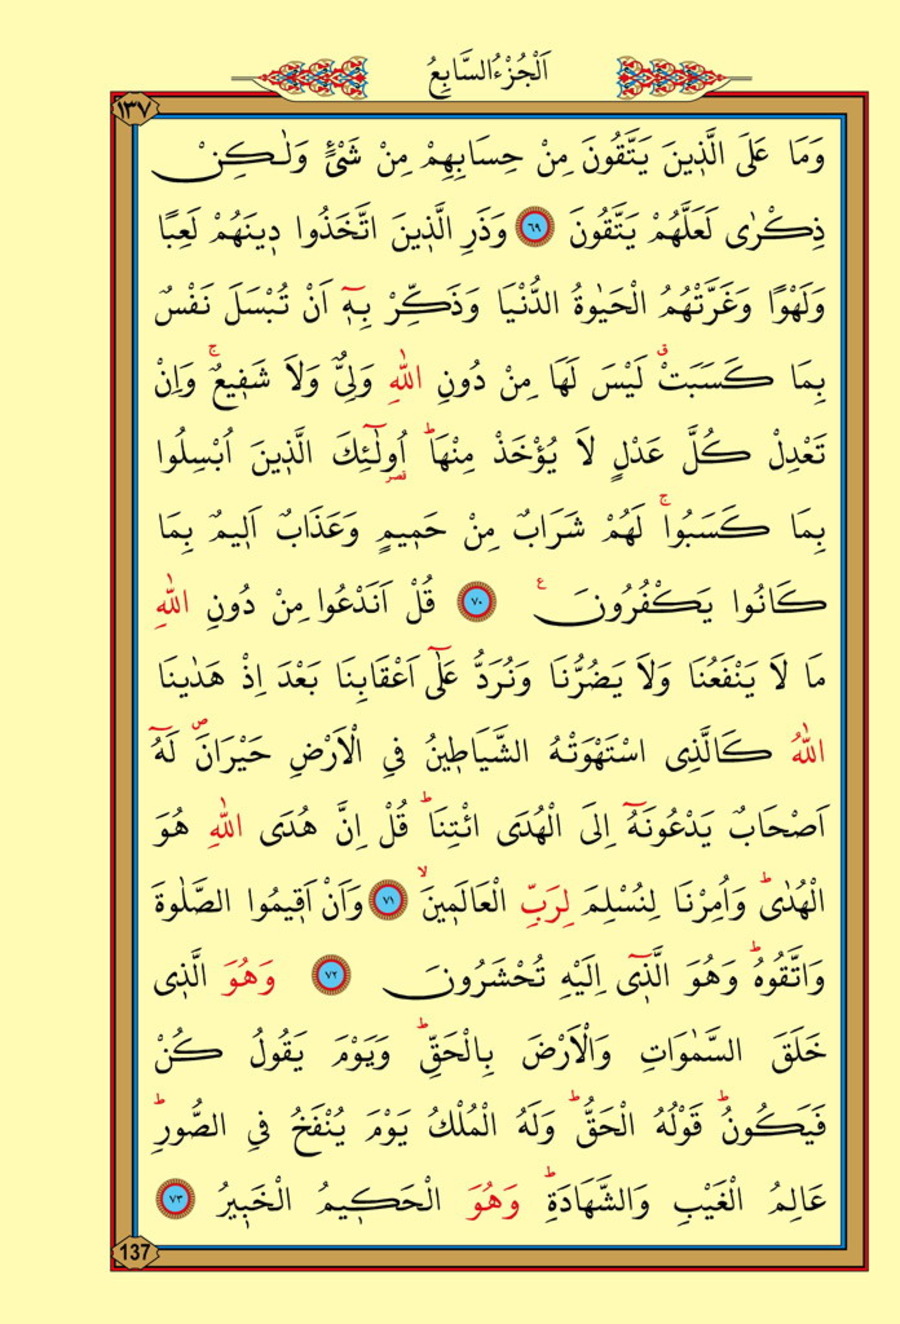 اَلْجُزْءُ السَّابِعُ
١٣٧
وَمَا عَلَى الَّذ۪ينَ يَتَّقُونَ مِنْ حِسَابِهِمْ مِنْ شَيْءٍ وَلٰكِنْ
ذِكْرٰى لَعَلَّهُمْ يَتَّقُونَ ﴿٦٩﴾ وَذَرِ الَّذ۪ينَ اتَّخَذُوا د۪ينَهُمْ لَعِبًا
وَلَهْوًا وَغَرَّتْهُمُ الْحَيٰوةُ الدُّنْيَا وَذَكِّرْ بِه۪ٓ اَنْ تُبْسَلَ نَفْسٌ
بِمَا كَسَبَتْۗ لَيْسَ لَهَا مِنْ دُونِ اللّٰهِ وَلِيٌّ وَلَا شَف۪يعٌۚ وَاِنْ
تَعْدِلْ كُلَّ عَدْلٍ لَا يُؤْخَذْ مِنْهَاۜ اُو۬لٰٓئِكَ الَّذ۪ينَ اُبْسِلُوا
بِمَا كَسَبُواۚ لَهُمْ شَرَابٌ مِنْ حَم۪يمٍ وَعَذَابٌ اَل۪يمٌ بِمَا
كَانُوا يَكْفُرُونَ۟ ﴿٧٠﴾ قُلْ اَنَدْعُوا مِنْ دُونِ اللّٰهِ
مَا لَا يَنْفَعُنَا وَلَا يَضُرُّنَا وَنُرَدُّ عَلٰٓى اَعْقَابِنَا بَعْدَ اِذْ هَدٰينَا
اللّٰهُ كَالَّذِي اسْتَهْوَتْهُ الشَّيَاط۪ينُ فِي الْاَرْضِ حَيْرَانَۖ لَهُٓ
اَصْحَابٌ يَدْعُونَهُٓ اِلَى الْهُدَى ائْتِنَاۜ قُلْ اِنَّ هُدَى اللّٰهِ هُوَ
الْهُدٰىۜ وَاُمِرْنَا لِنُسْلِمَ لِرَبِّ الْعَالَم۪ينَۙ ﴿٧١﴾ وَاَنْ اَق۪يمُوا الصَّلٰوةَ
وَاتَّقُوهُۜ وَهُوَ الَّذ۪ٓي اِلَيْهِ تُحْشَرُونَ ﴿٧٢﴾ وَهُوَ الَّذ۪ي
خَلَقَ السَّمٰوَاتِ وَالْاَرْضَ بِالْحَقِّۜ وَيَوْمَ يَقُولُ كُنْ
فَيَكُونُۜ قَوْلُهُ الْحَقُّۜ وَلَهُ الْمُلْكُ يَوْمَ يُنْفَخُ فِي الصُّورِۜ
عَالِمُ الْغَيْبِ وَالشَّهَادَةِۜ وَهُوَ الْحَك۪يمُ الْخَب۪يرُ ﴿٧٣﴾
137